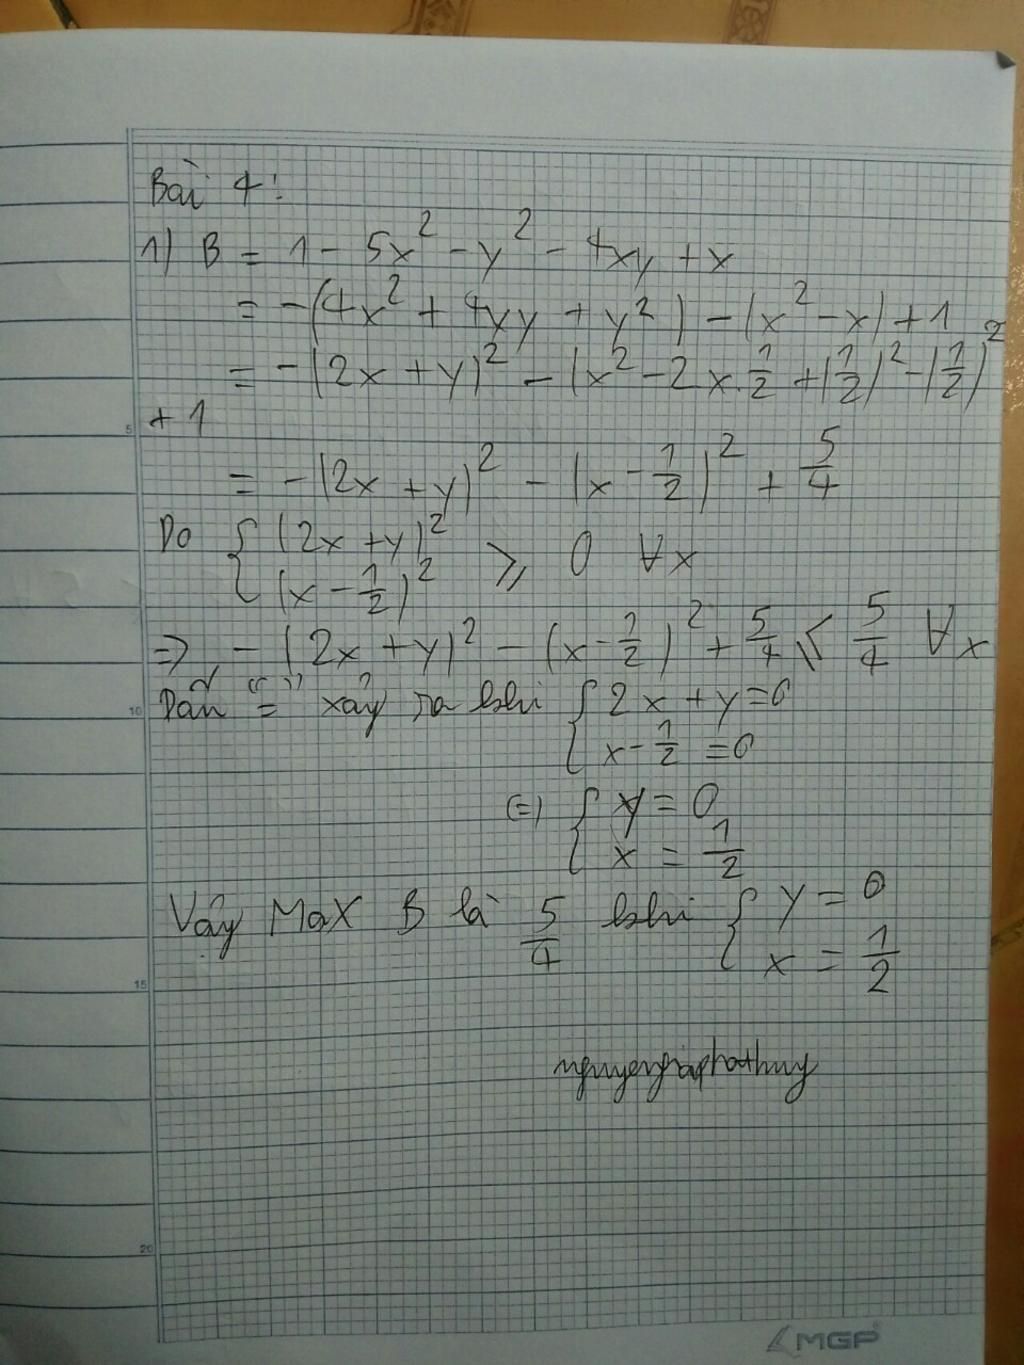 Bài 4:
1) B = 1 - 5x² - y² - 4xy + x
= -(4x² + 4xy + y²) - (x² - x) + 1
= -(2x + y)² - (x² - 2x.1/2 + (1/2)² - (1/2)²
+ 1
= -(2x + y)² - (x - 1/2)² + 5/4
Do { (2x + y)²
(x - 1/2)² ⩾ 0 ∀x
=> -(2x + y)² - (x - 1/2)² + 5/4 ⩽ 5/4 ∀x
Dấu "=" xảy ra khi { 2x + y = 0
x - 1/2 = 0
(=) { y = 0
x = 1/2
Vậy Max B là 5/4 khi { y = 0
x = 1/2
5
10
15
20
MGP